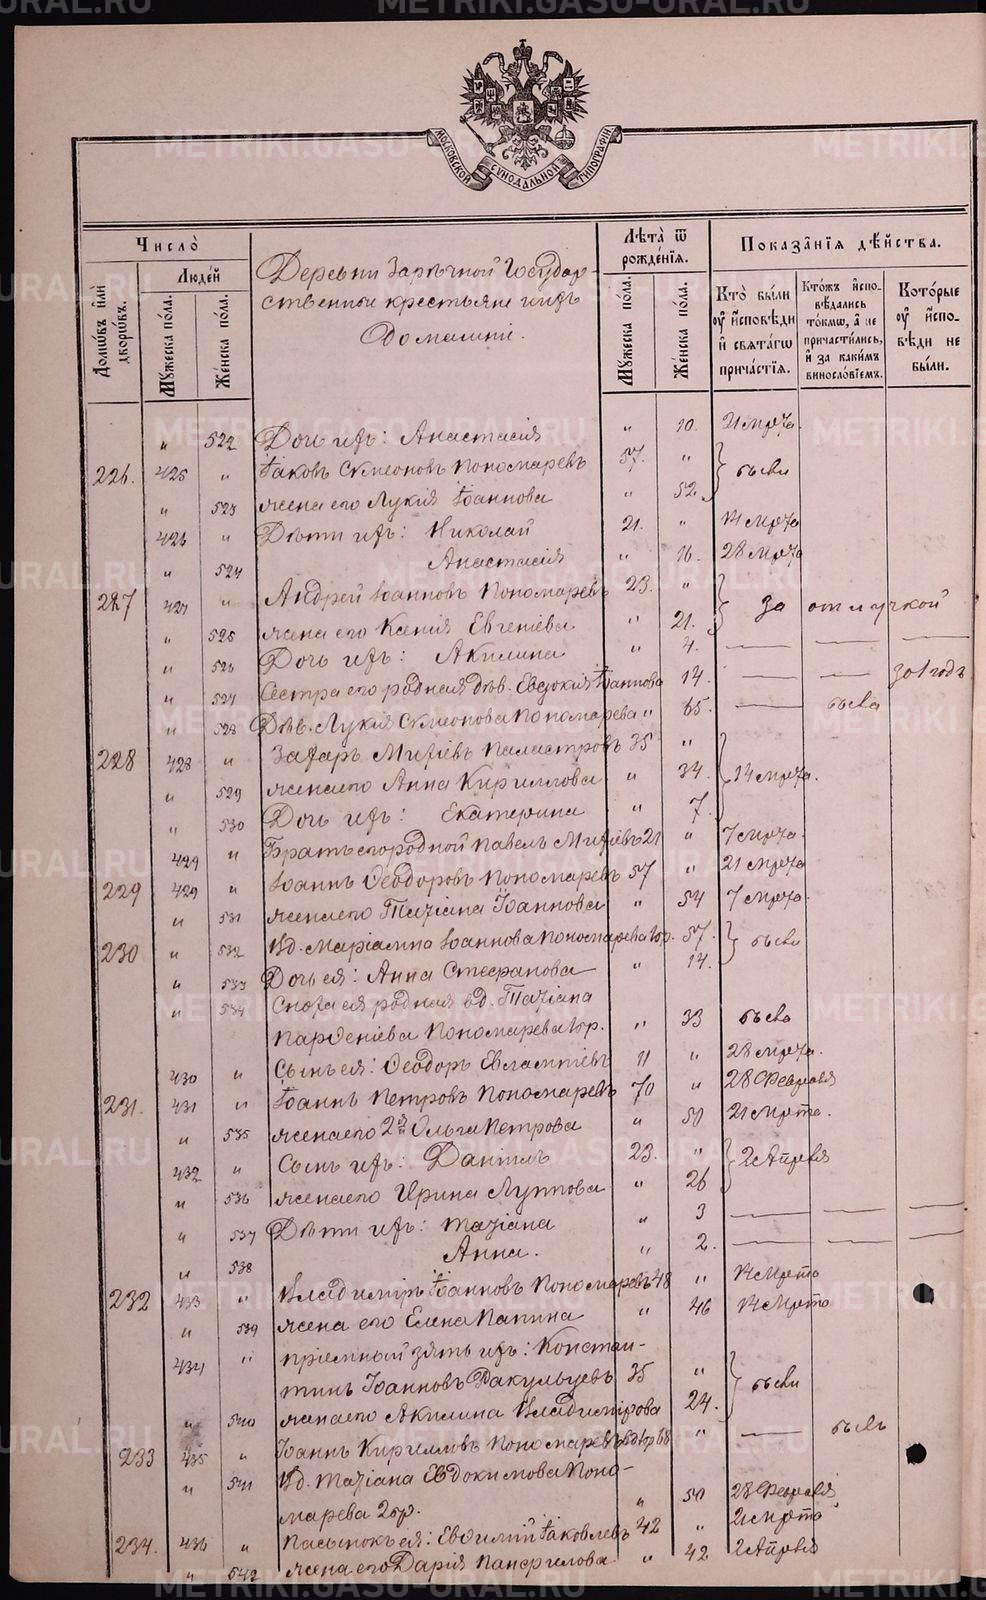 МОСКОВСКОЙ СѴНОДАЛЬНОЙ ТИПОГРАФІИ
Число̀
Людѣй
Домѡвъ и҆лѝ дворѡ́въ.
Мꙋ́жеска по́ла.
Же́нска по́ла.
Деревни Заречной Государ-
ственные крестьяне и ихъ
домашніе.
Лѣ́та ѿ рожде́нїѧ.
Мꙋ́жеска по́ла.
Же́нска по́ла.
Показа̑нїѧ дѣ́йства.
Кто̀ бы́ли ᲂу҆ и҆́сповѣди и҆ свѧта́гѡ причⷭ҇тїѧ.
Кто́жъ и҆спо-вѣ́дались то́кмѡ, а҆ не причасти́лись, и҆ за каки́мъ винослѡ́вїемъ.
Кото́рые ᲂу҆ и҆́спо-вѣди не бы́ли.
" 522 Дочь ихъ: Анастасія " 10. 21 Марта.
226. 425 " Іаковъ Симеоновъ Пономаревъ 57. " были
" 523 жена его Лукія Іоаннова " 52.
426 " Дѣти ихъ: Николай 21. " 14 Марта
" 524 Анастасія " 16. 28 Марта
227 427 " Андрей Іоанновъ Пономаревъ 23. " за отлучкой
" 525 жена его Ксенія Евгеніева " 21.
" 526 Дочь ихъ: Акилина " 4. — — —
" 527 Сестра его родная дѣв. Евдокія Іоаннова 14. — — за 1 годъ
" 528 Дѣв. Лукія Симеонова Пономарева " 65. — была
228 428 " Захаръ Михѣевъ Паластровъ 35 " 14 Марта.
" 529 жена его Анна Кириллова " 34.
" 530 Дочь ихъ: Екатерина " 7.
429 " Братъ его родной Павелъ Михѣевъ 21 " 7 Марта.
229 429 " Іоаннъ Ѳеодоровъ Пономаревъ 57 " 21 Марта
" 531 жена его Татіана Іоаннова " 54 7 Марта.
230 " 532 Вд. Маріамна Іоаннова Пономарева 1 бр. 57. были
" 533 Дочь ея: Анна Стефанова " 14.
" 534 Сноха ея родная вд. Татіана
Парѳеніева Пономарева 1 бр. " 33 была
430 " Сынъ ея: Ѳеодоръ Евлампіевъ 11 " 28 Марта.
231. 431 " Іоаннъ Петровъ Пономаревъ 70 " 28 Февраля
" 535 жена его 2я Ольга Петрова " 50 21 Марта.
432 " Сынъ ихъ: Даніилъ 23. " 2 Апреля
" 536 жена его Ирина Луппова " 26
" 537 Дѣти ихъ: Татіана " 3 — — —
" 538 Анна. " 2. — — —
232 433 " Владиміръ Іоанновъ Пономаревъ 48 " 14 Марта
" 539 жена его Елена Папина " 46 14 Марта
434 " Пріемный зять ихъ: Констан-
тинъ Іоанновъ Вакульцевъ 35 " были
" 540 жена его Акилина Владимірова 24.
233 435 " Іоаннъ Кирилловъ Пономаревъ вд. 1 бр. 68 " — былъ
" 541 Вд. Татіана Евдокимова Поно-
марева 2 бр. " 50 28 Февраля
234. 436 " Пасынокъ ея: Евѳимій Іаковлевъ 42 " 21 Марта
" 542 жена его Дарія Панфилова " 42 2 Апреля